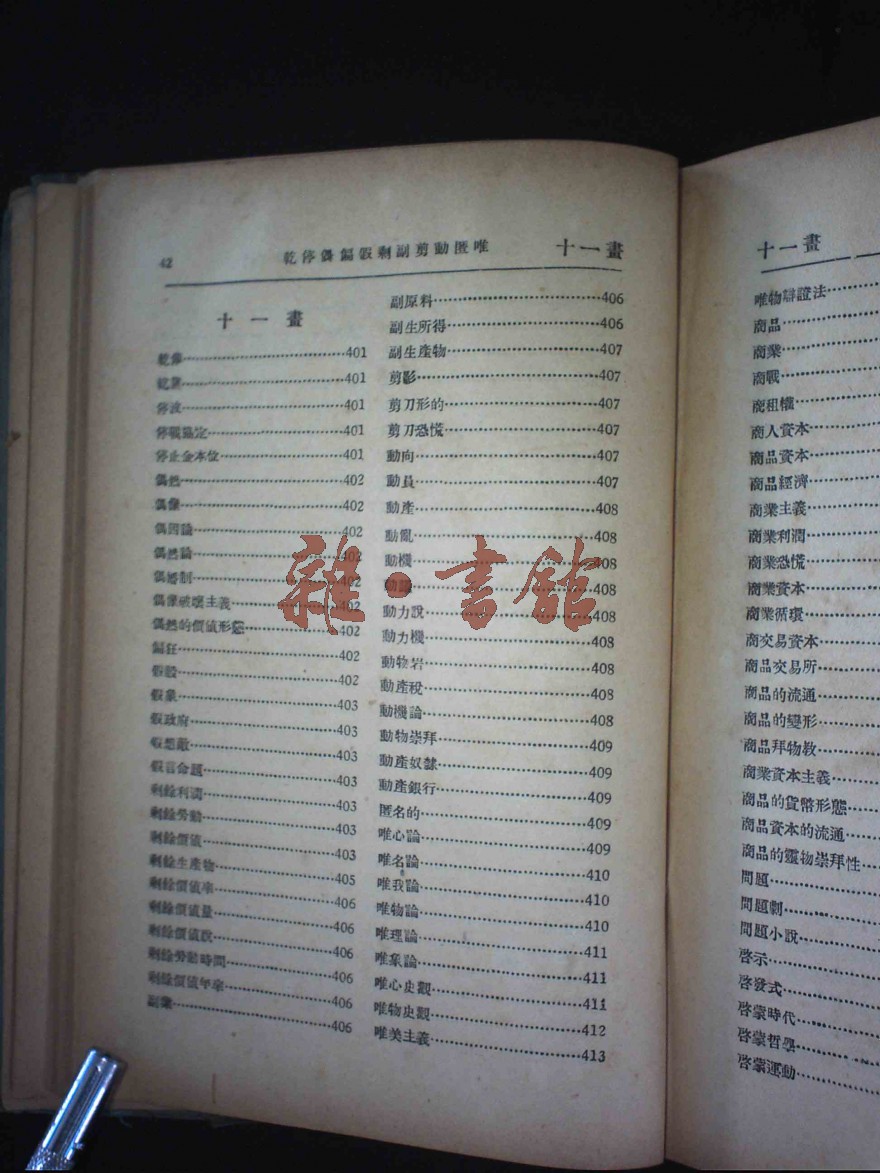 42 乾停偶偏假剩副剪動匿唯 十一畫
十一畫
401
401
停戰協定 401
停止金本位 401
偶然 402
偶像 402
偶因論 402
偶然論 402
偶婚制 402
偶像破壞主義 402
偶然的價值形態 402
402
假設 402
假象 403
假政府 403
假想敵 403
假言命題 403
剩餘利潤 403
剩餘勞動 403
剩餘價值 403
剩餘生產物 405
剩餘價值率 406
剩餘價值量 406
剩餘價值說 406
剩餘勞動時間 406
剩餘價值年率 406
副業 406
副原料 406
副生所得 406
副生產物 407
剪影 407
剪刀形的 407
剪刀恐慌 407
動向 407
動員 407
動產 408
動亂 408
動機 408
408
動力說 408
動力機 408
動物岩 408
動產稅 408
動機論 408
動物崇拜 409
動產奴隸 409
動產銀行 409
匿名的 409
唯心論 409
唯名論 410
唯我論 410
唯物論 410
唯理論 411
唯象論 411
唯心史觀 411
唯物史觀 412
唯美主義 413
十一畫
唯物辯證法
商品
商業
商戰
商租權
商人資本
商品資本
商品經濟
商業主義
商業利潤
商業恐慌
商業資本
商業循環
商交易資本
商品交易所
商品的流通
商品的變形
商品拜物教
商業資本主義
商品的貨幣形態
商品資本的流通
商品的靈物崇拜性
問題
問題劇
問題小說
啓示
啓發式
啓蒙時代
啓蒙哲學
啓蒙運動
雜·書館